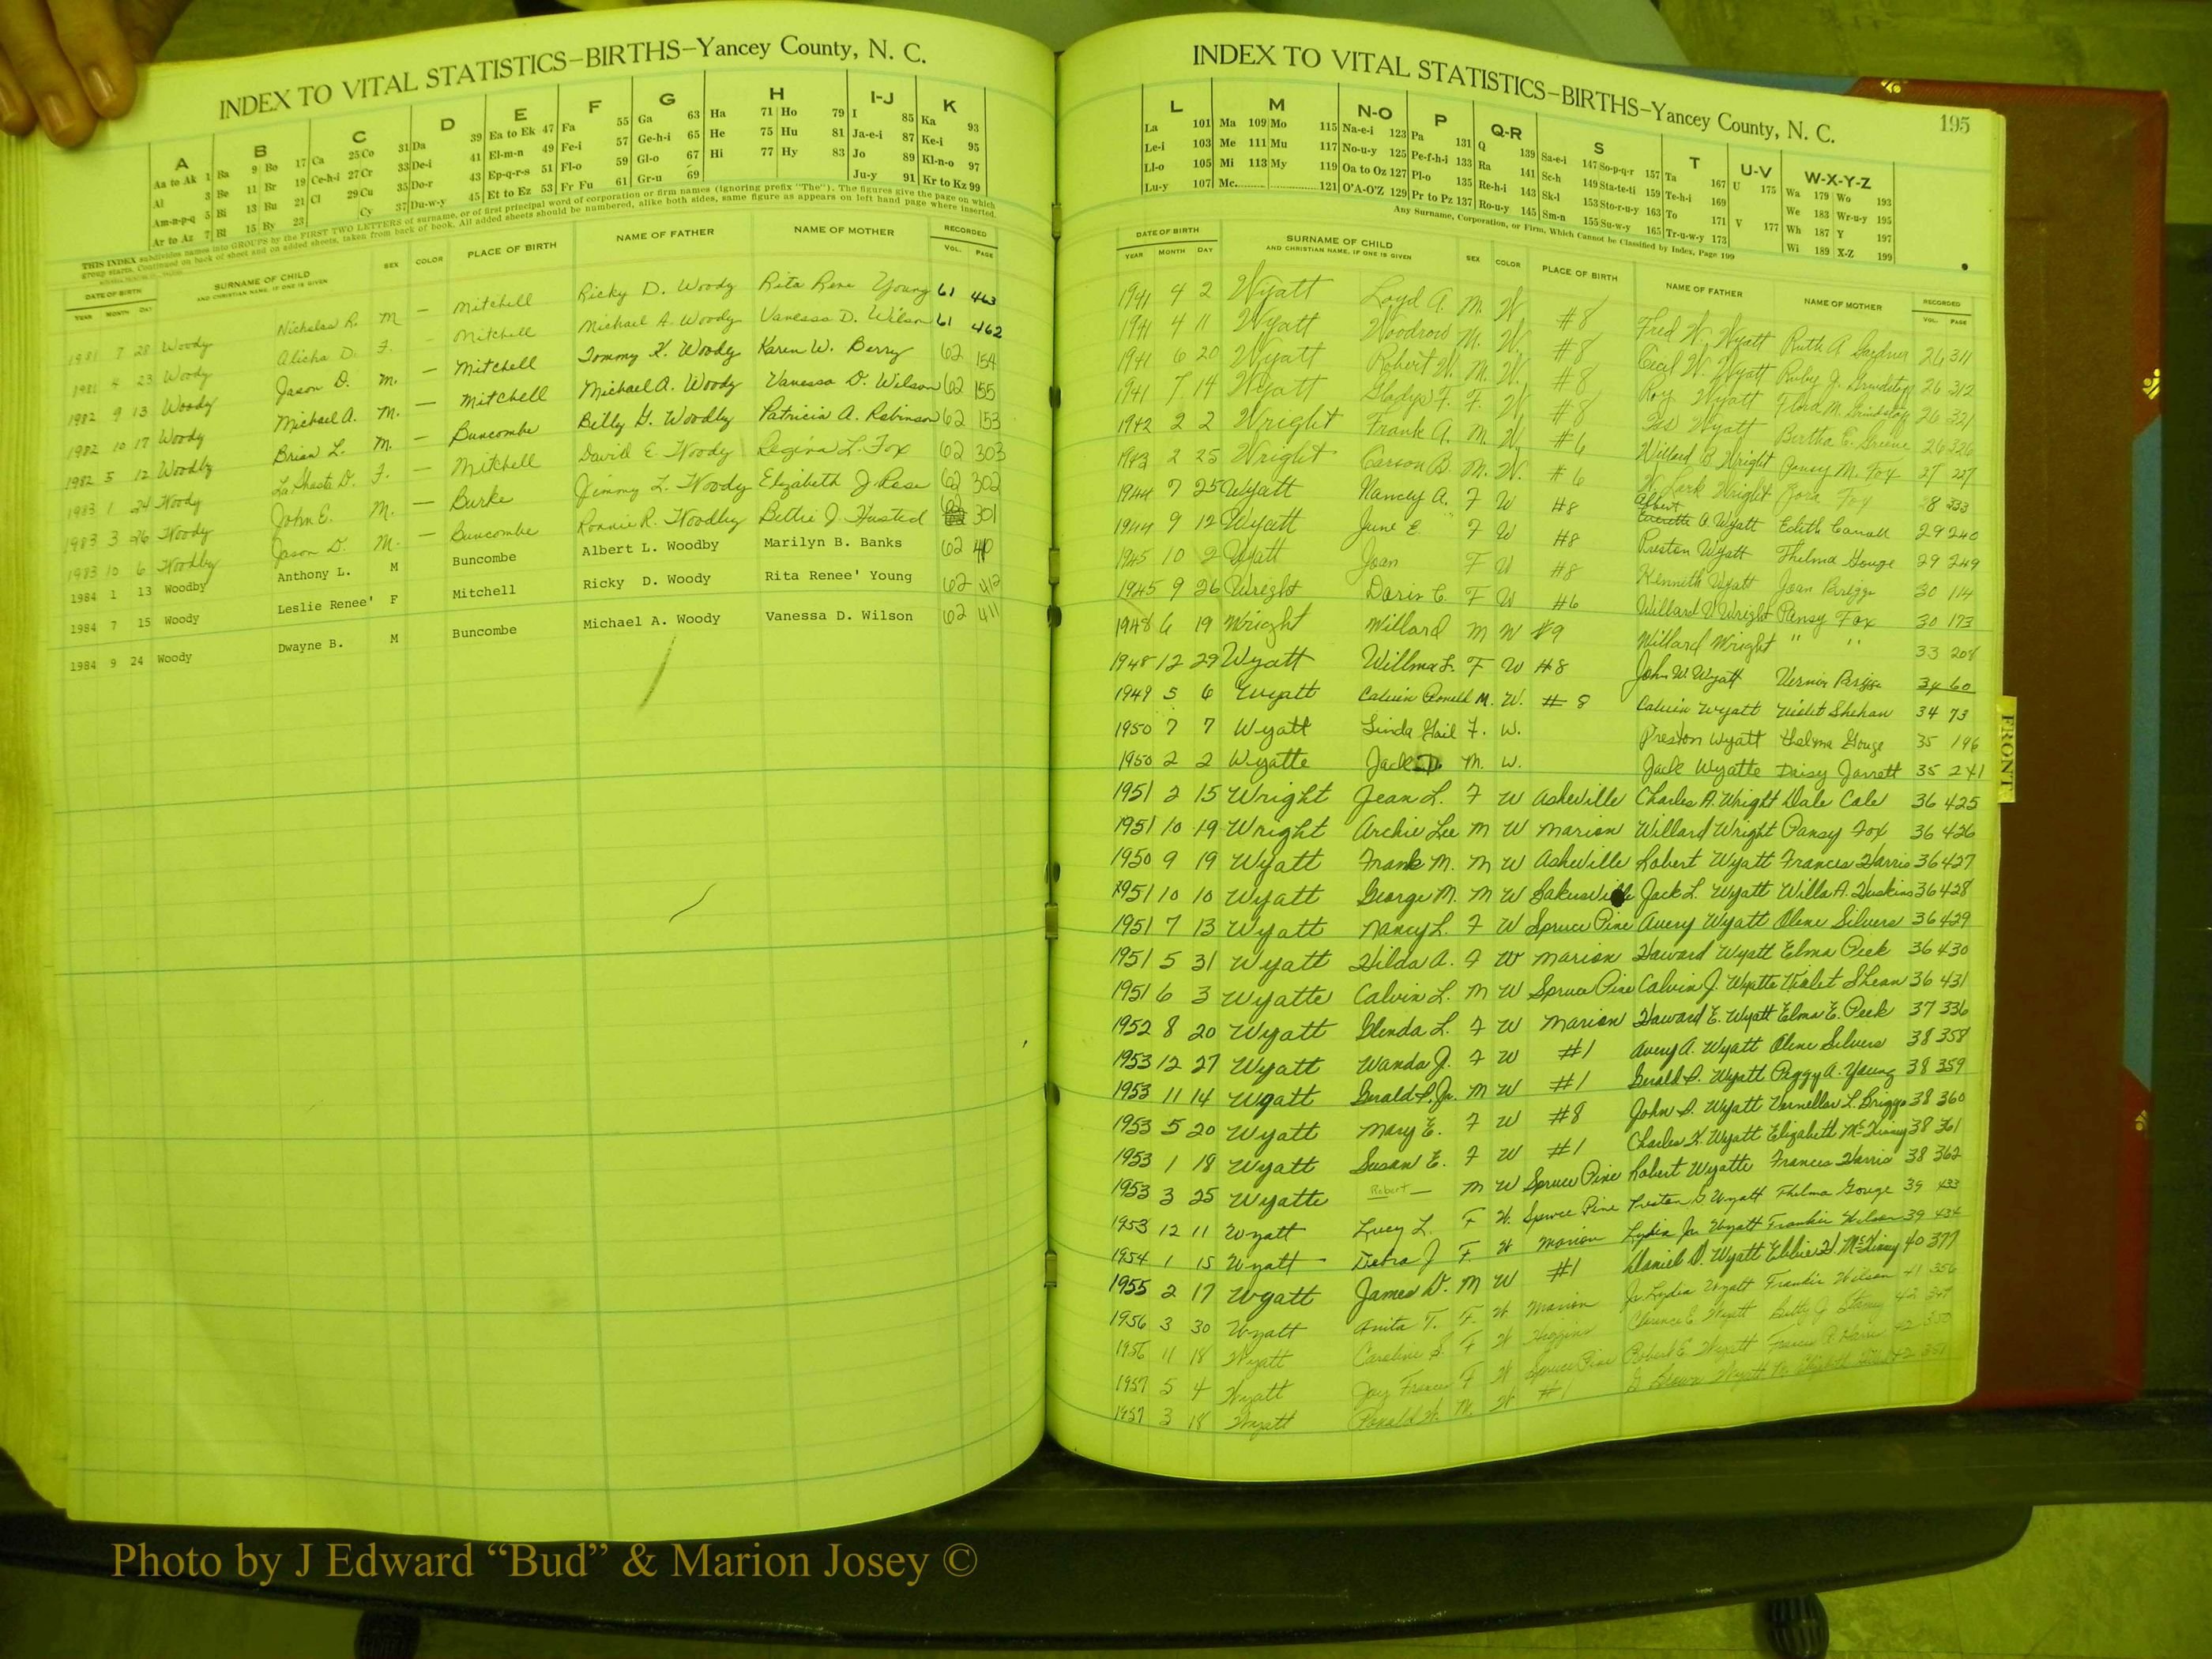 INDEX TO VITAL STATISTICS–BIRTHS–Yancey County, N. C.
A B C D E F G H I-J K
Aa to Ak 1 Ba 9 Bo 17 Ca 25 Co 31 Da 39 Ea to Ek 47 Fa 55 Ga 63 Ha 71 Ho 79 I 85 Ka 93
Al 3 Be 11 Br 19 Ce-h-i 27 Cr 33 De-i 41 El-m-n 49 Fe-i 57 Ge-h-i 65 He 75 Hu 81 Ja-e-i 87 Ke-i 95
Am-n-p-q 5 Bi 13 Bu 21 Cl 29 Cu 35 Do-r 43 Ep-q-r-s 51 Fl-o 59 Gl-o 67 Hi 77 Hy 83 Jo 89 Kl-n-o 97
Ar to Az 7 Bl 15 By 23 Cy 37 Du-w-y 45 Et to Ez 53 Fr Fu 61 Gr-u 69 Ju-y 91 Kr to Kz 99
THIS INDEX subdivides names into GROUPS by the FIRST TWO LETTERS of surname, or of first principal word of corporation or firm names (ignoring prefix "The"). The figures give the page on which
group starts. Continued on back of sheet and on added sheets, taken from back of book. All added sheets should be numbered, alike both sides, same figure as appears on left hand page where inserted.
DATE OF BIRTH SURNAME OF CHILD SEX COLOR PLACE OF BIRTH NAME OF FATHER NAME OF MOTHER RECORDED
YEAR MONTH DAY AND CHRISTIAN NAME, IF ONE IS GIVEN VOL. PAGE
1981 7 28 Woody Nicholas R. M — Mitchell Ricky D. Woody Rita Rene Young 61 463
1981 4 23 Woody Alicha D. F. — Mitchell Michael A. Woody Vanessa D. Wilson 61 462
1982 9 13 Woody Jason D. M. — Mitchell Tommy K. Woody Karen W. Berry 62 154
1982 10 17 Woody Michael A. M. — Mitchell Michael A. Woody Vanessa D. Wilson 62 155
1982 5 12 Woodby Brian L. M. — Buncombe Billy G. Woodby Patricia A. Robinson 62 153
1983 1 24 Woody D. F. — Mitchell David E Woody Regina L. Fox 62 303
1983 3 26 Woody John E. M. — Burke Jimmy L. Woody Elizabeth J Rose 62 302
1983 10 6 Woodby Jason D. M. — Buncombe Ronnie R. Woodby Bettie J. Husted 62 301
1984 1 13 Woodby Anthony L. M Buncombe Albert L. Woodby Marilyn B. Banks 62 410
1984 7 15 Woody Leslie Renee' F Mitchell Ricky D. Woody Rita Renee' Young 62 412
1984 9 24 Woody Dwayne B. M Buncombe Michael A. Woody Vanessa D. Wilson 62 411
INDEX TO VITAL STATISTICS–BIRTHS–Yancey County, N. C. 195
L M N-O P Q-R S T U-V W-X-Y-Z
La 101 Ma 109 Mo 115 Na-e-i 123 Pa 131 Q 139 Sa-e-i 147 So-p-q-r 157 Ta 167 U 175 Wa 179 Wo 193
Le-i 103 Me 111 Mu 117 No-u-y 125 Pe-f-h-i 133 Ra 141 Sc-h 149 Sta-te-ti 159 Te-h-i 169 We 183 Wr-u-y 195
Ll-o 105 Mi 113 My 119 Oa to Oz 127 Pl-o 135 Re-h-i 143 Sk-l 153 Sto-r-u-y 163 To 171 V 177 Wh 187 Y 197
Lu-y 107 Mc 121 O'A-O'Z 129 Pr to Pz 137 Ro-u-y 145 Sm-n 155 Su-w-y 165 Tr-u-w-y 173 Wi 189 X-Z 199
Any Surname, Corporation, or Firm, Which Cannot be Classified by Index, Page 199
DATE OF BIRTH SURNAME OF CHILD SEX COLOR PLACE OF BIRTH NAME OF FATHER NAME OF MOTHER RECORDED
YEAR MONTH DAY AND CHRISTIAN NAME, IF ONE IS GIVEN VOL. PAGE
1941 4 2 Wyatt Loyd A. M. W. #8 Fred W. Wyatt Ruth A Gardner 26 311
1941 4 11 Wyatt Woodrow M. W. #8 Cecil W. Wyatt Ruby J. Grindstaff 26 312
1941 6 20 Wyatt Robert W. M. W. #8 Roy Wyatt Flora M. Grindstaff 26 321
1941 7 14 Wyatt Gladys F. F. W. #8 Wyatt Bertha E. Greene 26 326
1942 2 2 Wright Frank A. M. W. #6 Willard B Wright Pansy M. Fox 27
1943 2 25 Wright Carson B. M. W. #6 Wright Zora Fox 28 333
1944 7 25 Wyatt Nancy A. F W #8 Albert A. Wyatt Edith Carroll 29 240
1944 9 12 Wyatt June E F W #8 Preston Wyatt Thelma Gouge 29 249
1945 10 2 Wyatt Joan F W #8 Kenneth Wyatt Joan Briggs 30 114
1945 9 26 Wright Doris C. F W #6 Willard V Wright Pansy Fox 30 173
1948 6 19 Wright Willard M W #9 Willard Wright " " 33 208
1948 12 29 Wyatt Willma L. F W #8 John W. Wyatt Briggs 34 60
1949 5 6 Wyatt Calvin Ronald M. W. # 8 Calvin Wyatt Violet Shehan 34 73
1950 7 7 Wyatt Linda Gail F. W. Preston Wyatt Thelma Gouge 35 196
1950 2 2 Wyatte Jack D. M. W. Jack Wyatte Daisy Jarrett 35 241
1951 2 15 Wright Jean L. F W Asheville Charles A. Wright Dale Cole 36 425
1951 10 19 Wright Archie Lee M W Marion Willard Wright Pansy Fox 36 426
1950 9 19 Wyatt Frank M. M W Asheville Robert Wyatt Frances Harris 36 427
1951 10 10 Wyatt George M. M W Bakersville Jack L. Wyatt Willa A. Huskins 36 428
1951 7 13 Wyatt Nancy L. F W Spruce Pine Avery Wyatt Olene Silvers 36 429
1951 5 31 Wyatt Hilda A. F W Marion Howard Wyatt Elma Peek 36 430
1951 6 3 Wyatte Calvin L. M W Spruce Pine Calvin J. Wyatte Violet Shean 36 431
1952 8 20 Wyatt Glenda L. F W Marion Howard E. Wyatt Elma E. Peek 37 336
1953 12 27 Wyatt Wanda J. F W #1 Avery A. Wyatt Olene Silvers 38 358
1953 11 14 Wyatt Gerald S. Jr. M W #1 Gerald S. Wyatt Peggy A. Young 38 359
1953 5 20 Wyatt Mary E. F W #8 John S. Wyatt L. Briggs 38 360
1953 1 18 Wyatt Susan E. F W #1 Charles K. Wyatt Elizabeth McKinney 38 361
1953 3 25 Wyatte Robert — M W Spruce Pine Robert Wyatte Frances Harris 38 362
1953 12 11 Wyatt Lucy L. F W. Spruce Pine Preston G Wyatt Thelma Gouge 39 433
1954 1 15 Wyatt Debra J F. W Marion Lydia Jr. Wyatt Frankie Wilson 39 434
1955 2 17 Wyatt James D. M W #1 Daniel D. Wyatt H. McKinney 40 377
1956 3 30 Wyatt Anita T. F. W. Marion Jr. Lydia Wyatt Frankie Wilson 41 356
1956 11 18 Wyatt Caroline S. F W Higgins Clarence E. Wyatt Betty J 42
1957 5 4 Wyatt Joy Frances F W Spruce Pine Robert E Wyatt Harris 42 350
1957 3 18 Wyatt Ronald W. M. W #1 Wyatt 42
FRONT
Photo by J Edward “Bud” & Marion Josey ©